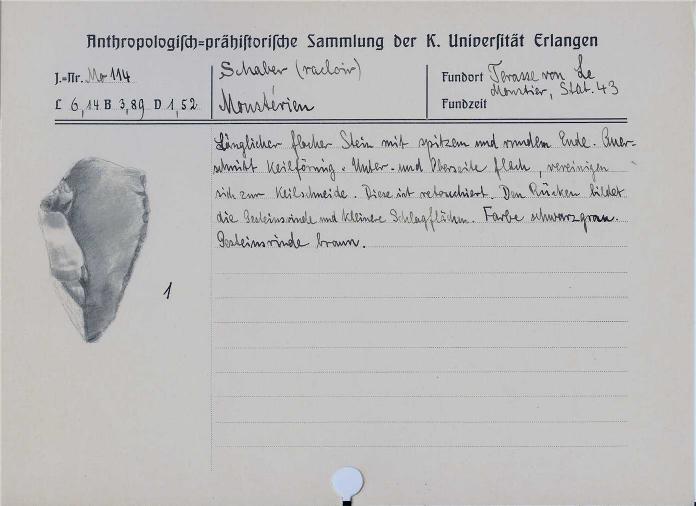 Anthropologisch=prähistorische Sammlung der K. Universität Erlangen
J.=Nr. Mo 114
Schaber (racloir)
Fundort Terasse von Le
Moustier, Stat. 43
L 6,14 B 3,89 D 1,52
Moustérien
Fundzeit
Länglicher flacher Stein mit spitzem und rundem Ende. Quer-
schnitt Keilförmig. Unter- und Oberseite flach, vereinigen
sich zur Keilschneide. Diese ist retouchiert. Den Rücken bildet
die Gesteinsrinde und kleinere Schlagflächen. Farbe schwarzgrau.
Gesteinsrinde braun.
1